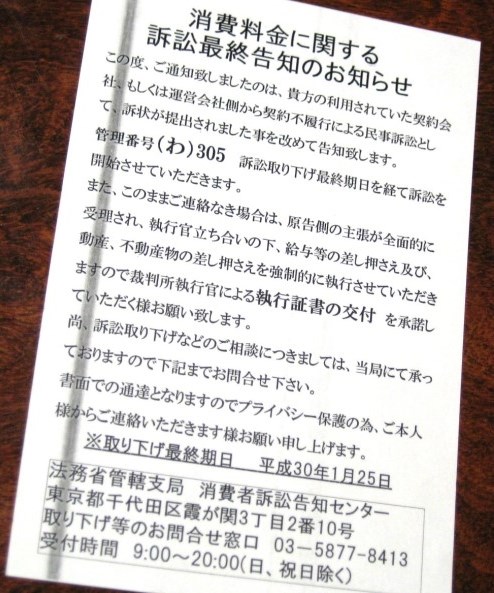 消費料金に関する
訴訟最終告知のお知らせ
この度、ご通知致しましたのは、貴方の利用されていた契約会
社、もしくは運営会社側から契約不履行による民事訴訟とし
て、訴状が提出されました事を改めて告知致します。
管理番号(わ)305 訴訟取り下げ最終期日を経て訴訟を
開始させていただきます。
また、このままご連絡なき場合は、原告側の主張が全面的に
受理され、執行官立ち合いの下、給与等の差し押さえ及び、
動産、不動産物の差し押さえを強制的に執行させていただき
ますので裁判所執行官による執行証書の交付 を承諾し
ていただく様お願い致します。
尚、訴訟取り下げなどのご相談につきましては、当局にて承っ
ておりますので下記までお問合せ下さい。
書面での通達となりますのでプライバシー保護の為、ご本人
様からご連絡いただきます様お願い申し上げます。
※取り下げ最終期日 平成30年1月25日
法務省管轄支局 消費者訴訟告知センター
東京都千代田区霞が関3丁目2番10号
取り下げ等のお問合せ窓口 03-5877-8413
受付時間 9:00～20:00(日、祝日除く)